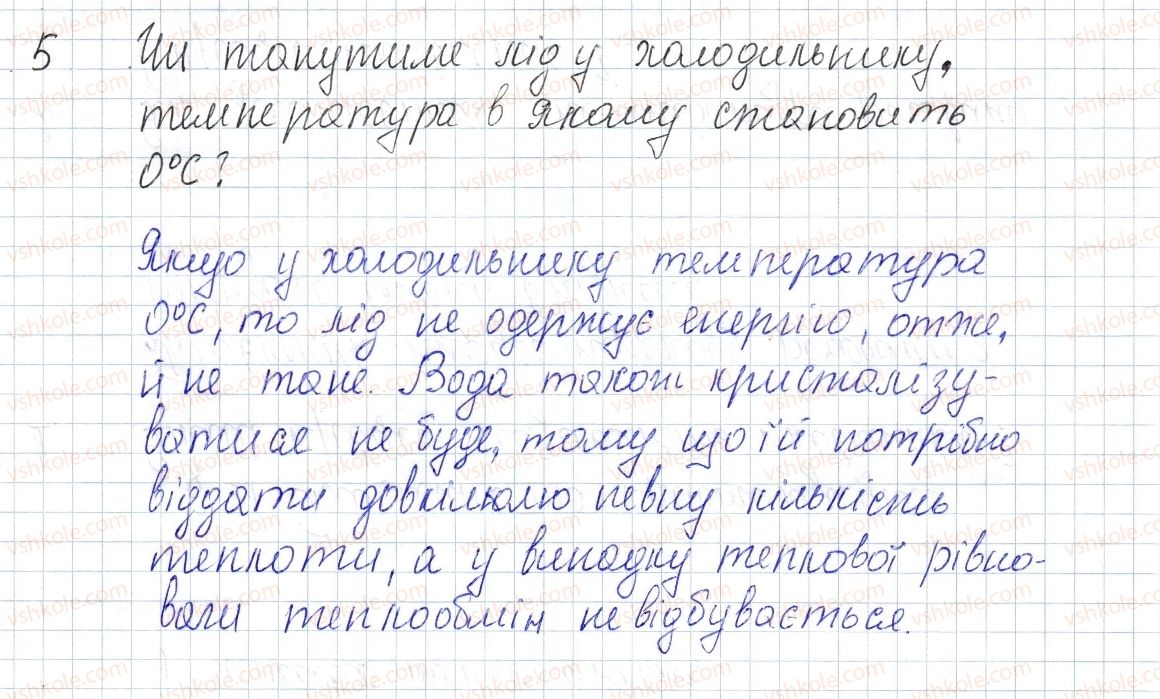 5 Чи танутиме лід у холодильнику,
температура в якому становить
0°С?
Якщо у холодильнику температура
0°С, то лід не одержує енергію, отже,
й не тане. Вода також кристалізу-
ватися не буде, тому що їй потрібно
віддати довкіллю певну кількість
теплоти, а у випадку теплової рівно-
ваги теплообмін не відбувається.